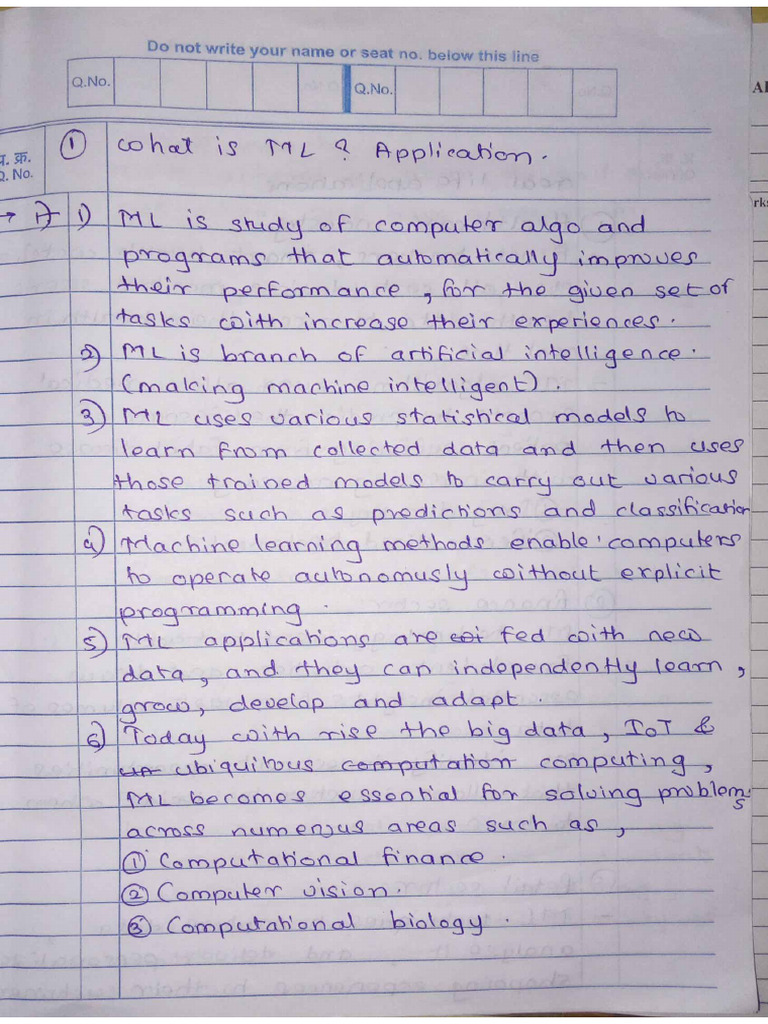 Do not write your name or seat no. below this line
Q.No.
Q.No.
① What is ML ? Application.
प्र. क्र.
Q. No.
→ 1) 1) ML is study of computer algo and
programs that automatically improves
their performance, for the given set of
tasks with increase their experiences.
2) ML is branch of artificial intelligence.
(making machine intelligent).
3) ML uses various statistical models to
learn from collected data and then uses
those trained models to carry out various
tasks such as predictions and classification
4) Machine learning methods enable computers
to operate autonomusly without explicit
programming.
5) ML applications are fed with new
data, and they can independently learn,
grow, develop and adapt.
6) Today with rise the big data, IoT &
ubiquitous computation computing,
ML becomes essential for solving problems
across numerous areas such as,
① Computational finance.
② Computer vision.
③ Computational biology.